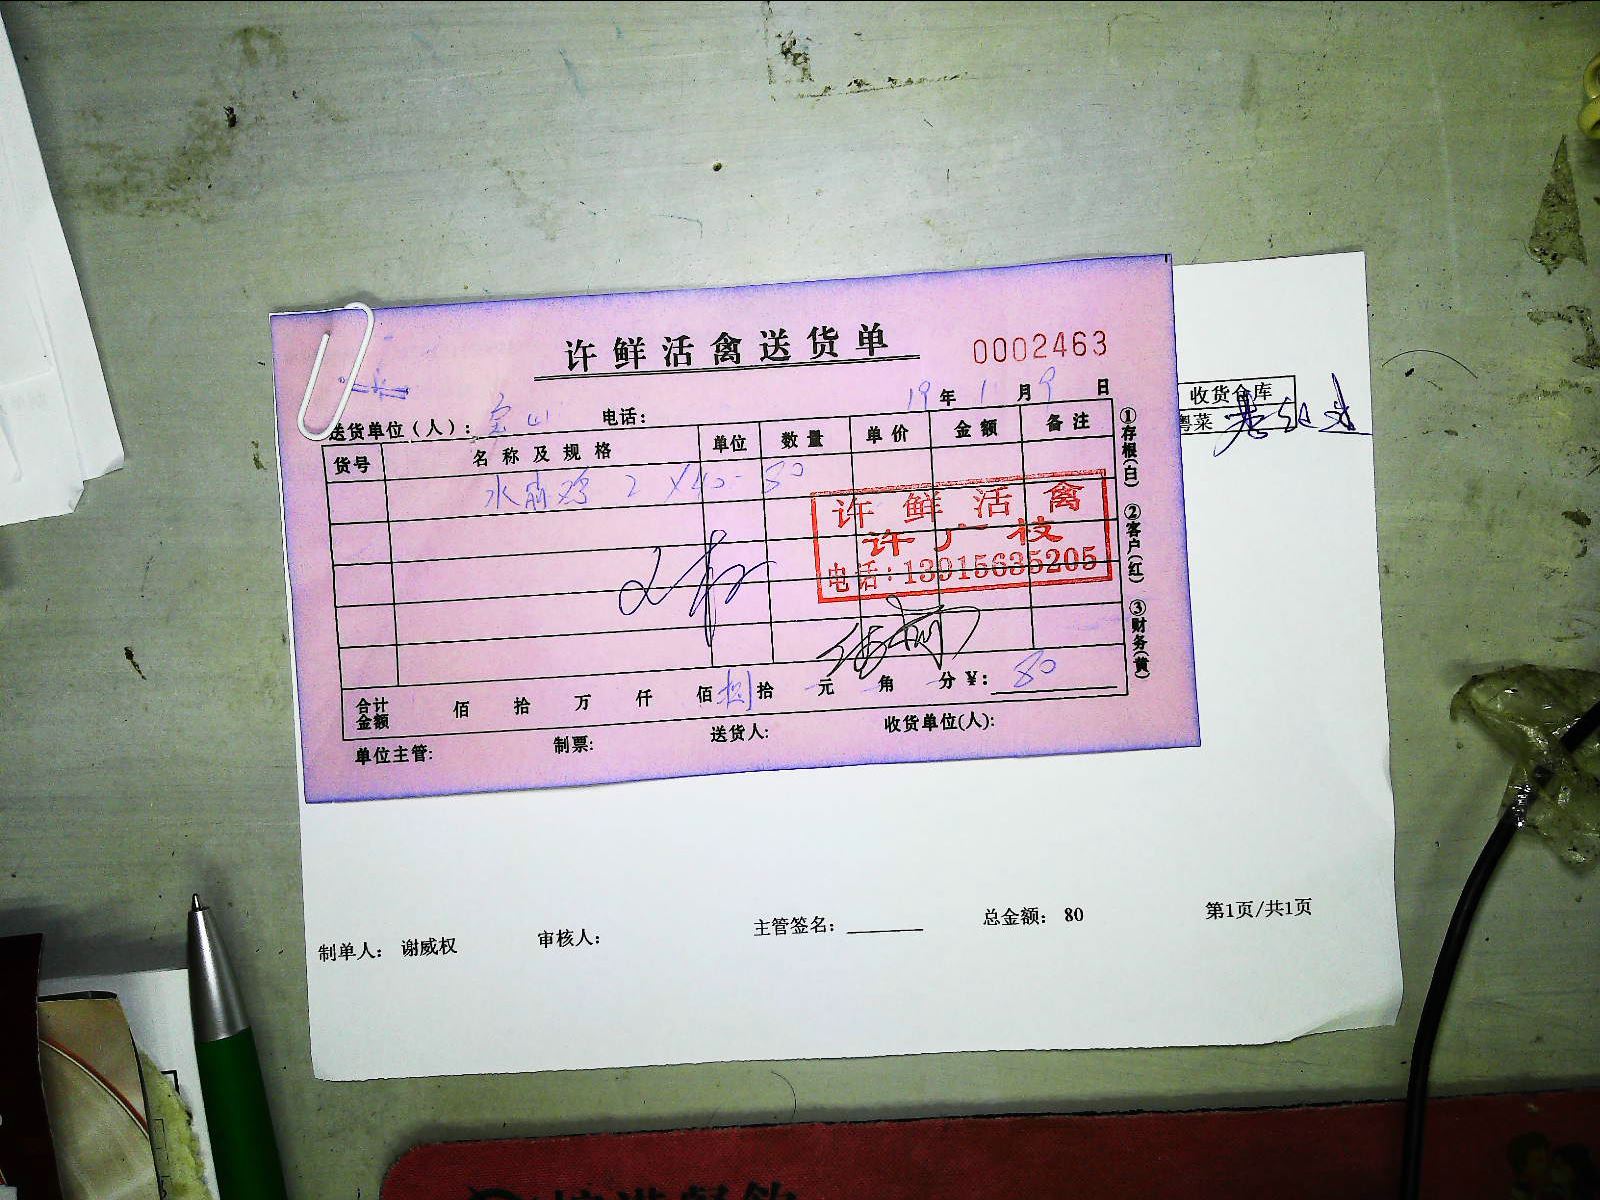 许鲜活禽送货单 0002463
19年1月9日
送货单位(人): 宝山 电话:
货号 名称及规格 单位 数量 单价 金额 备注
水 鸡 2×40=80
许鲜活禽
许广枝
电话:13915635205
合计金额 佰 拾 万 仟 佰捌拾 元 角 分 ¥: 80
单位主管: 制票: 送货人: 收货单位(人):
①存根(白) ②客户(红) ③财务(黄)
收货仓库
粤菜
制单人: 谢威权 审核人: 主管签名: 总金额: 80 第1页/共1页